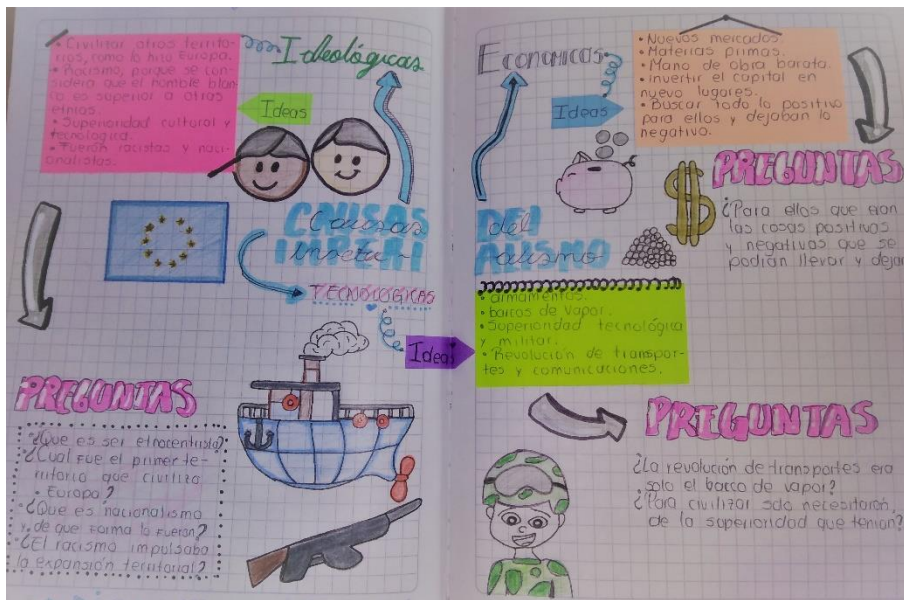 • Civilizar otros territo-
rios, como lo hizo Europa.
• Racismo, porque se con-
sidera que el hombre blan-
co es superior a otras
etnias.
• Superioridad cultural y
tecnologica.
• Fuerón racistas y naci-
onalistas.
Ideológicas
Ideas
CAUSAS
Causas
IMPERI
TECNOLOGICAS
Ideas
PREGUNTAS
¿Que es ser etnocentrista?
¿Cual fue el primer te-
rritorio que civilizo
Europa?
¿Que es nacionalismo
y de que forma lo fueron?
¿El racismo impulsaba
la expansión territorial?
Economicas
Ideas
• Nuevos mercados.
• Materias primas.
• Mano de obra barata.
• Invertir el capital en
nuevo lugares.
• Buscar todo lo positivo
para ellos y dejaban lo
negativo.
PREGUNTAS
¿Para ellos que eran
las cosas positivas
y negativas que se
podían llevar y dejar
DEL
del
ALISMO
alismo
• armamentos.
• barcos de vapor.
• Superioridad tecnológica
y militar.
• Revolución de transpor-
tes y comunicaciones.
PREGUNTAS
¿La revolución de transportes era
solo el barco de vapor?
¿Para civilizar solo necesitaron
de la superioridad que tenían?